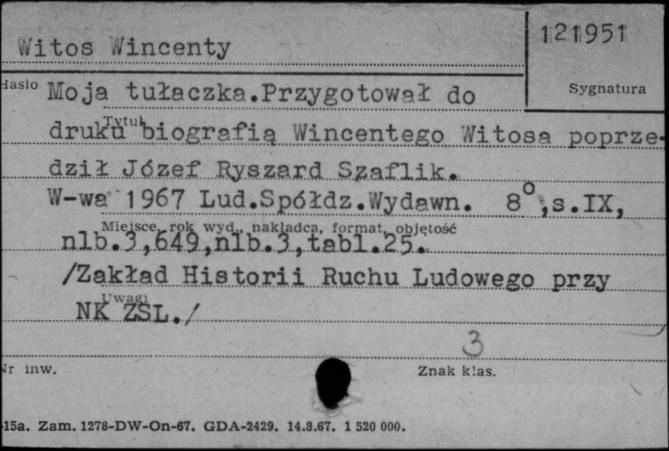 Witos Wincenty
121951
Hasło
Sygnatura
Moja tułaczka.Przygotował do
Tytuł
druku biografią Wincentego Witosa poprze-
dził Józef Ryszard Szaflik.
W-wa 1967 Lud.Spółdz.Wydawn. 8⁰,s.IX,
Miejsce, rok wyd., nakładca, format, objętość
nlb.3,649,nlb.3,tabl.25.
/Zakład Historii Ruchu Ludowego przy
Uwagi
NK ZSL./
3
Nr inw.
Znak klas.
-15a. Zam. 1278-DW-On-67. GDA-2429. 14.8.67. 1 520 000.